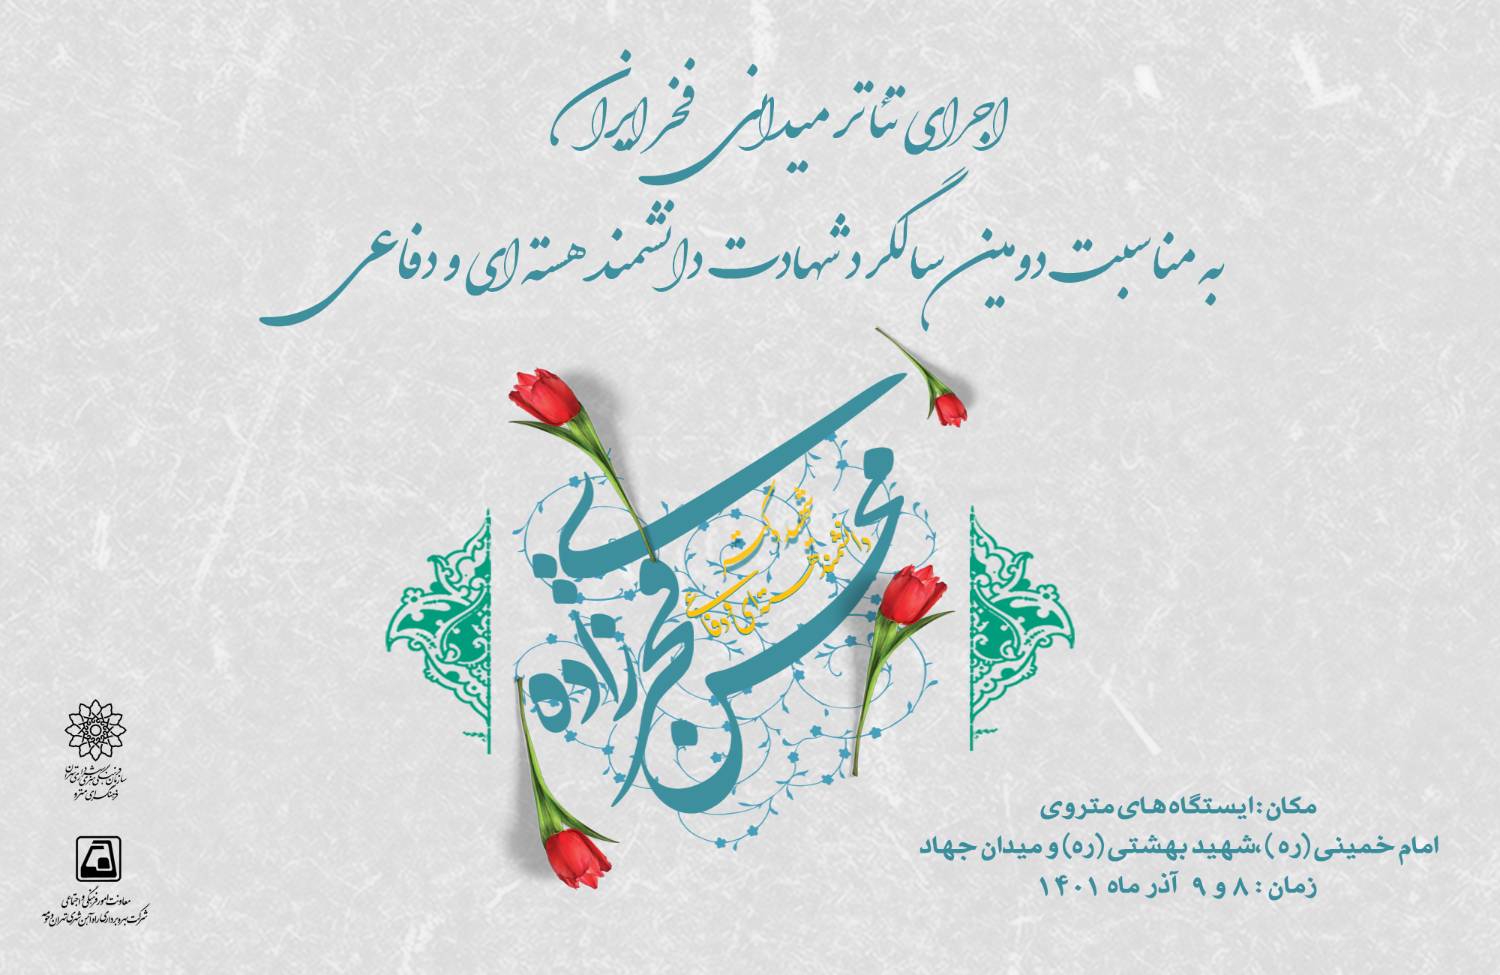 اجرای تئاتر میدانی فخر ایران
به مناسبت دومین سالگرد شهادت دانشمند هسته ای و دفاعی
شهید دکتر
دانشمند هسته ای و دفاعی
محسن فخری زاده
مکان : ایستگاه های متروی
امام خمینی (ره) ،شهید بهشتی (ره) و میدان جهاد
زمان : ۸ و ۹ آذر ماه ۱۴۰۱
سازمان فرهنگی هنری شهرداری تهران
فرهنگسرای مترو
معاونت امور فرهنگی و اجتماعی
شرکت بهره برداری راه آهن شهری تهران و حومه